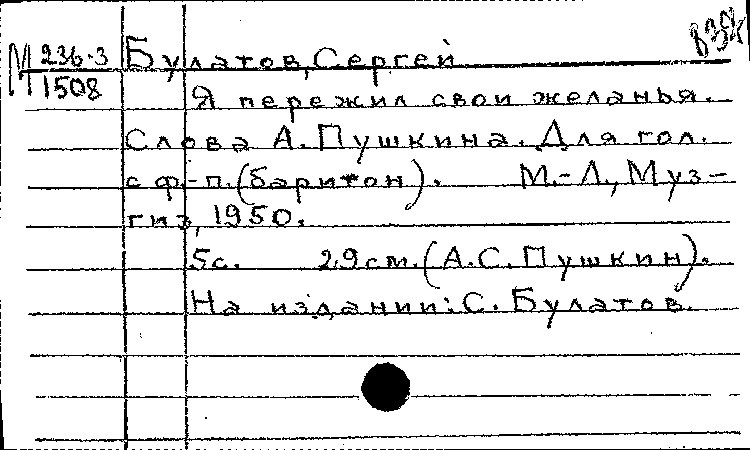 М 236-3
1508
Булатов, Сергей
Я пережил свои желанья.
Слова А. Пушкина. Для гол.
с ф.-п. (баритон). М.-Л., Муз-
гиз, 1950.
5с. 29см. (А.С. Пушкин).
На издании: С. Булатов.